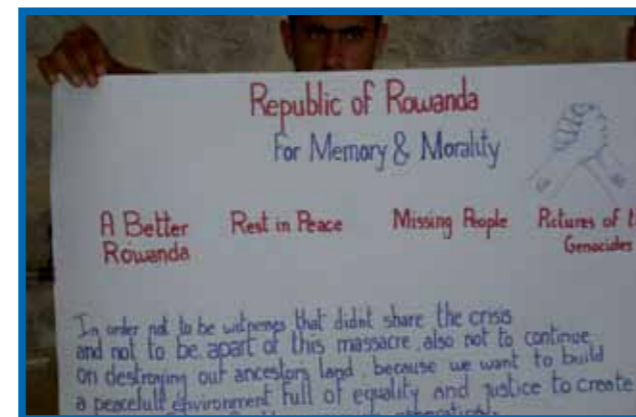 Republic of Rowanda
For Memory & Morality
A Better
Rowanda
Rest in Peace
Missing People
Pictures of
Genocides
In order not to be witnesses that didnt share the crisis
and not to be apart of this massacre also not to continue
on destroying our ancestors land, because we want to build
a peacefull environment full of equality and justice to create